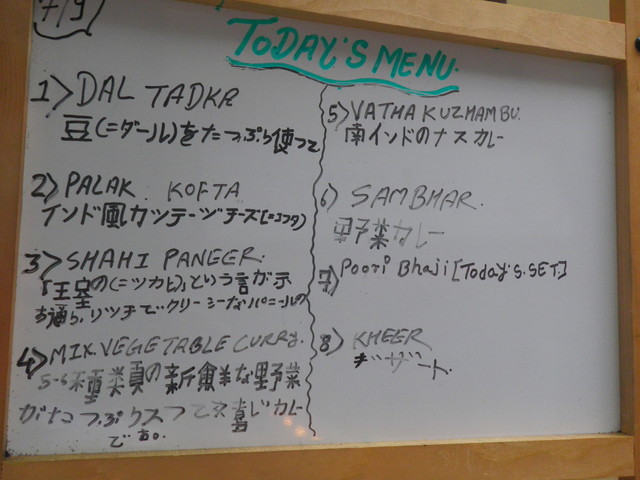 7/9
TODAY'S MENU.
1> DAL TADKA
豆(=ダール)をたっぷら使って
2> PALAK KOFTA
インド風カッテージチーズ(=コフタ)
3> SHAHI PANEER.
「王室の(=ツカヒ)」という言が示
す通ら、リッチでクリーシーなパニールの
4> MIX. VEGETABLE CURRY.
5-6種類の新鮮な野菜
がたっぷり入って
カレー
である。
5> VATHA KUZHAMBU.
南インドのナスカレー
6) SAMBHAR.
野菜カレー
7> Poori Bhaji [Today's. SET]
8> KHEER
デザート.